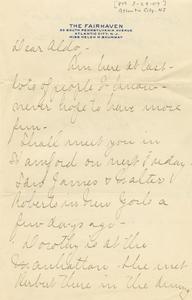 [PM 3-29-07]
Atlantic City, NJ
THE FAIRHAVEN
SOUTH PENNSYLVANIA AVENUE
ATLANTIC CITY, N.J.
MISS HELEN M
Dear Aldo,-
Am here at last-
lots of people I know-
never hope to have more
fun-
Shall meet you in
Stamford on next Tuesday.
Saw James & Walter
Roberts in New York a
few days ago-
Dorothy is at the
Manhattan- She met
Herbert there in the dining